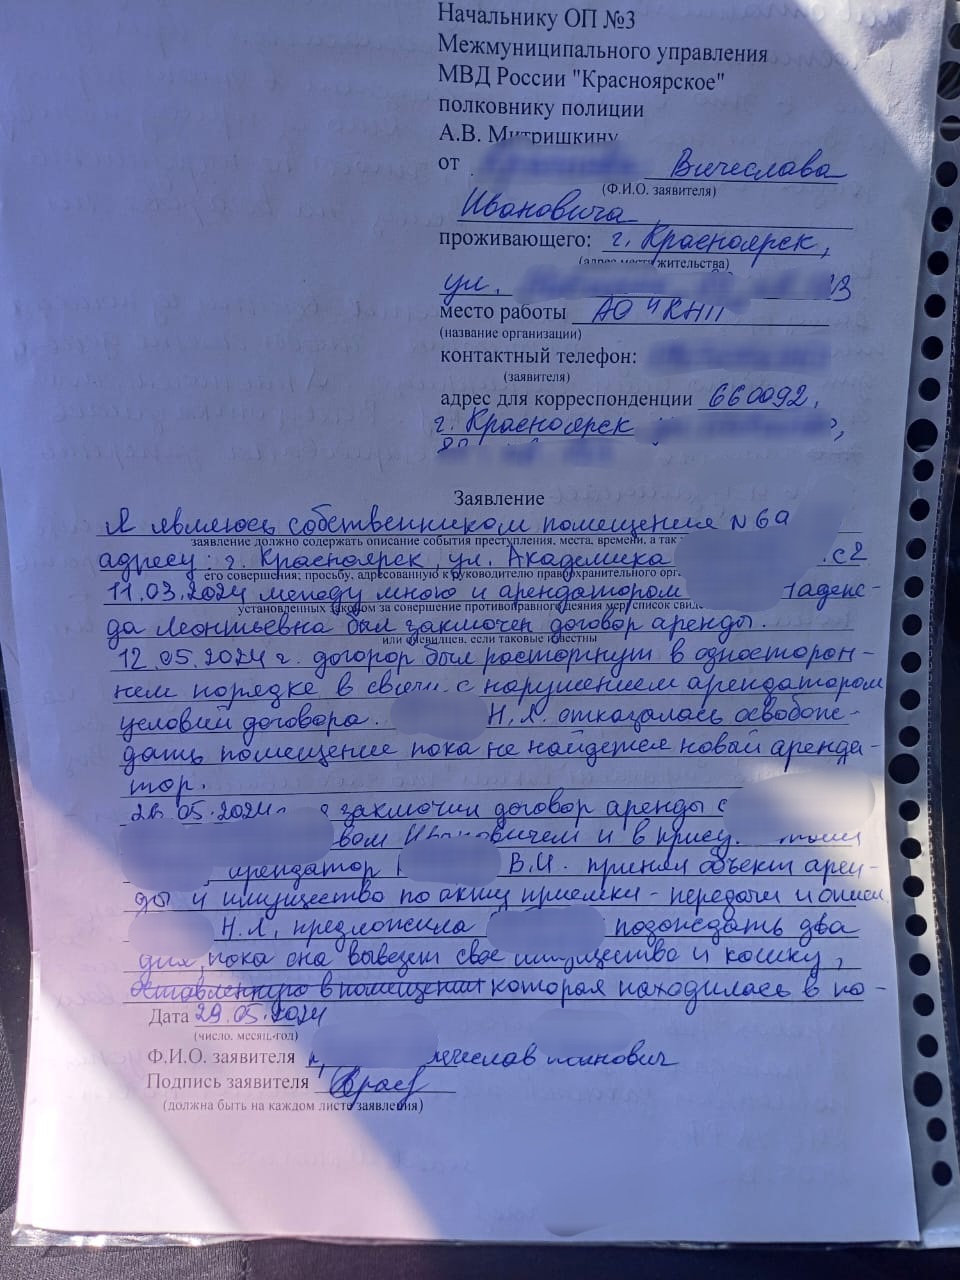 Начальнику ОП №3
Межмуниципального управления
МВД России "Красноярское"
полковнику полиции
А.В. Митришкину
от Вячеслава
(Ф.И.О. заявителя)
Ивановича
проживающего: г. Красноярск,
(адрес места жительства)
ул. 13
место работы АО "КНП
(название организации)
контактный телефон:
(заявителя)
адрес для корреспонденции 660092,
г. Красноярск ,
Заявление
Я являюсь собственником помещения N 69
заявление должно содержать описание события преступления, места, времени, а так
адресу: г. Красноярск, ул. Академика . с 2
его совершения; просьбу, адресованную к руководителю правоохранительного орг
11.03.2024 между мною и арендатором Надеж-
установленных законом за совершение противоправного деяния мер; список свид
да Леонтьевна был заключен договор аренды.
или очевидцев, если таковые известны
12.05.2024 г. договор был расторгнут в односторон-
нем порядке в связи с нарушением арендатором
условий договора. Н.Л. отказалась освобож-
дать помещение пока не найдется новый аренда-
тор.
26.05.2024 я заключил договор аренды с
вом Ивановичем и в
арендатор В.И. принял объект арен-
ды и имущество по акту приемки-передачи и описи
Н.Л. предложила подождать два
дня, пока она вывезет свое имущество и кошку,
оставленную в помещении которая находилась в по-
Дата 29.05.2024
(число, месяц, год)
Ф.И.О. заявителя ячеслав Иванович
Подпись заявителя
(должна быть на каждом листе заявления)